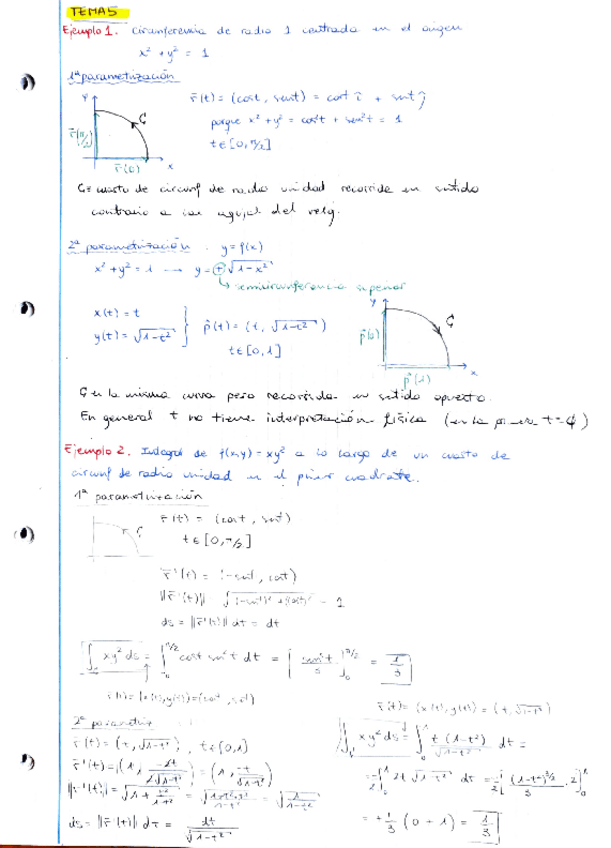 TEMA 5
Ejemplo 1. Circunferencia de radio 1 centrada en el origen
x² + y² = 1
1ª parametrización
r̄(t) = (cost, sent) = cost î + sent ĵ
porque x² + y² = cos²t + sen²t = 1
t∈[0, π/2]
y
C
r̄(π/2)
r̄(0)
x
C = cuarto de circunf de radio unidad recorrida en sentido
contrario a las agujas del reloj.
2ª parametrización. y = f(x)
x² + y² = 1 → y = ⊕√1-x²
↳ semicircunferencia superior
x(t) = t
y(t) = √1-t² } p̄(t) = (t, √1-t²)
t∈[0,1]
y
C
p̄(0)
p̄(1)
x
C es la misma curva pero recorrida en sentido opuesto.
En general t no tiene interpretación física (en la primera t=φ)
Ejemplo 2. Integral de f(x,y) = xy² a lo largo de un cuarto de
circunf de radio unidad en el primer cuadrante.
1ª parametrización
C
r̄(t) = (cost, sent)
t∈[0, π/2]
r̄'(t) = (-sent, cost)
||r̄'(t)|| = √(-sent)² + (cost)² = 1
ds = ||r̄'(t)|| dt = dt
∫ xy² ds = ∫₀^π/2 cost sen²t dt = [sen³t/3]₀^π/2 = 1/3
r̄(t) = (x(t), y(t)) = (cost, sent)
2ª parametriz
r̄(t) = (t, √1-t²), t∈[0,1]
r̄'(t) = (1, -2t/2√1-t²) = (1, -t/√1-t²)
||r̄'(t)|| = √1 + t²/1-t² = √1-t²+t²/1-t² = √1/1-t²
ds = ||r̄'(t)|| dt = dt/√1-t²
r̄(t) = (x(t), y(t)) = (t, √1-t²)
∫ xy² ds = ∫₀¹ t(1-t²)/√1-t² dt =
= -1/2 ∫₀¹ -2t √1-t² dt = -1/2 [(1-t²)^3/2/3 · 2]₀¹
= +1/3 (0+1) = 1/3